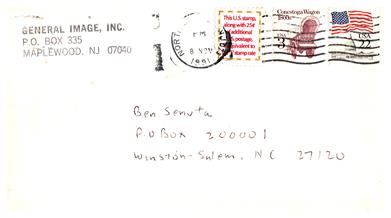 GENERAL IMAGE, INC.
P.O. BOX 335
MAPLEWOOD, NJ 07040
8 NOV
1991
This U.S. stamp,
along with 25¢
of additional
U.S. postage,
is equivalent to
stamp rate
Conestoga Wagon
1800s
3
USA
USA
22
Ben Senuta
P.O Box 200001
Winston-Salem, NC 27120